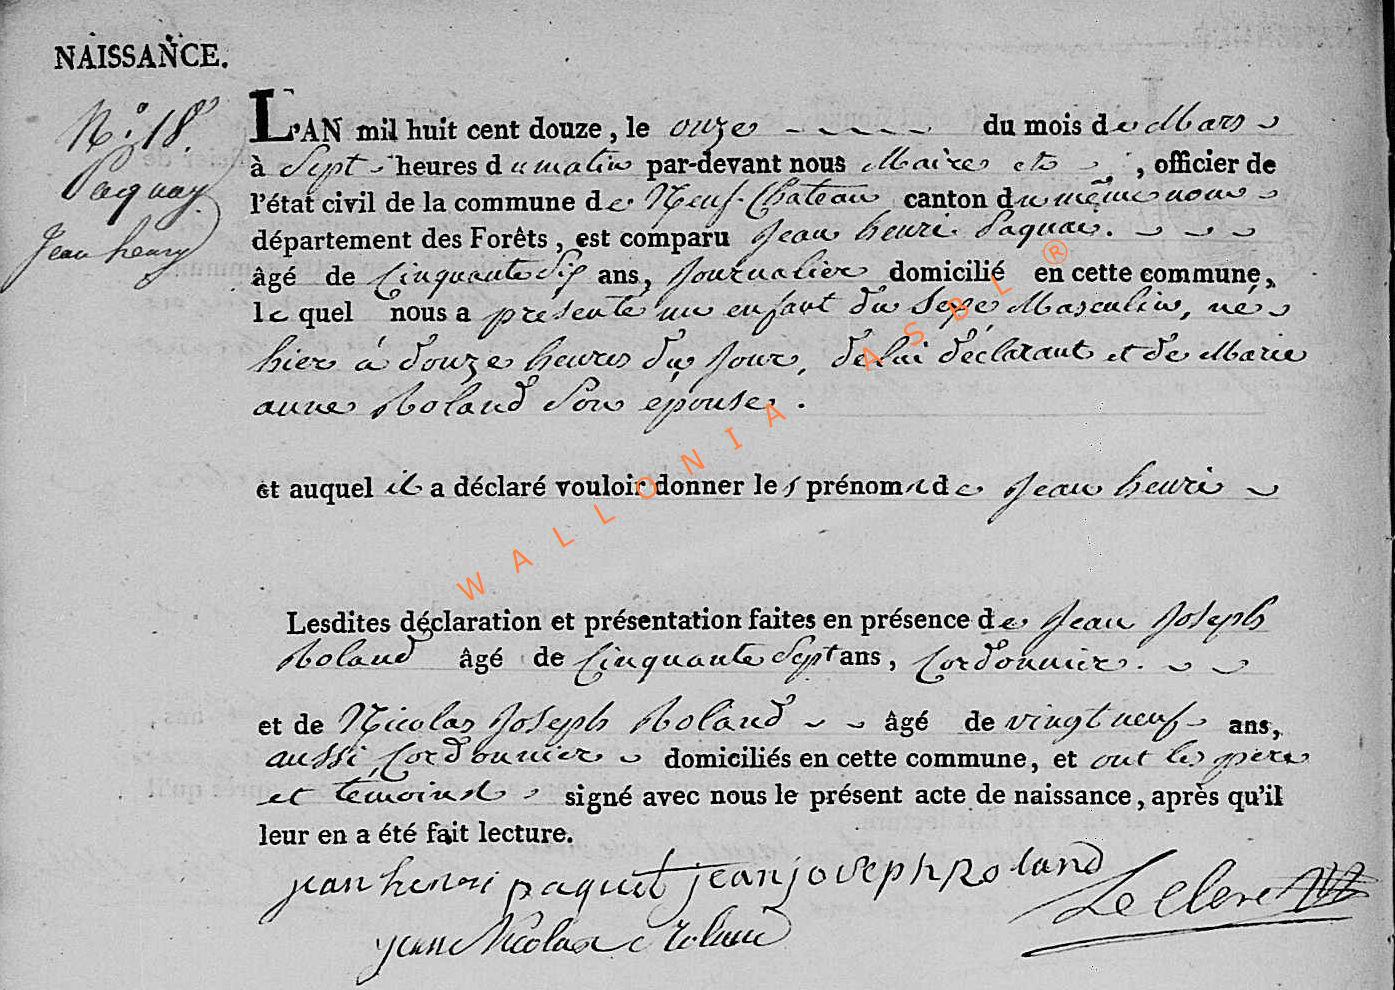 NAISSANCE.
N.° 18.
Pacquay
Jean henry
L'AN mil huit cent douze, le onze du mois de Mars
à Sept heures du matin par-devant nous Maire etc, officier de
l'état civil de la commune de Neuf-Chateau canton du même nom
département des Forêts, est comparu Jean henri Paquai.
âgé de Cinquante Six ans, Journalier domicilié en cette commune,
le quel nous a présenté un enfant du Sexe Masculin, né
hier à douze heures du Jour, de lui déclarant et de Marie
anne Roland Son épouse.
et auquel il a déclaré vouloir donner les prénoms de Jean henri
Lesdites déclaration et présentation faites en présence de Jean Joseph
Roland âgé de Cinquante Sept ans, Cordonnier.
et de Nicolas Joseph Roland âgé de vingt neuf ans,
aussi Cordonnier domiciliés en cette commune, et ont les père
et temoins signé avec nous le présent acte de naissance, après qu'il
leur en a été fait lecture.
jean henri paquet jean joseph Roland
Le Clere
jean Nicolas Roland
WALLONIA ASBL ®